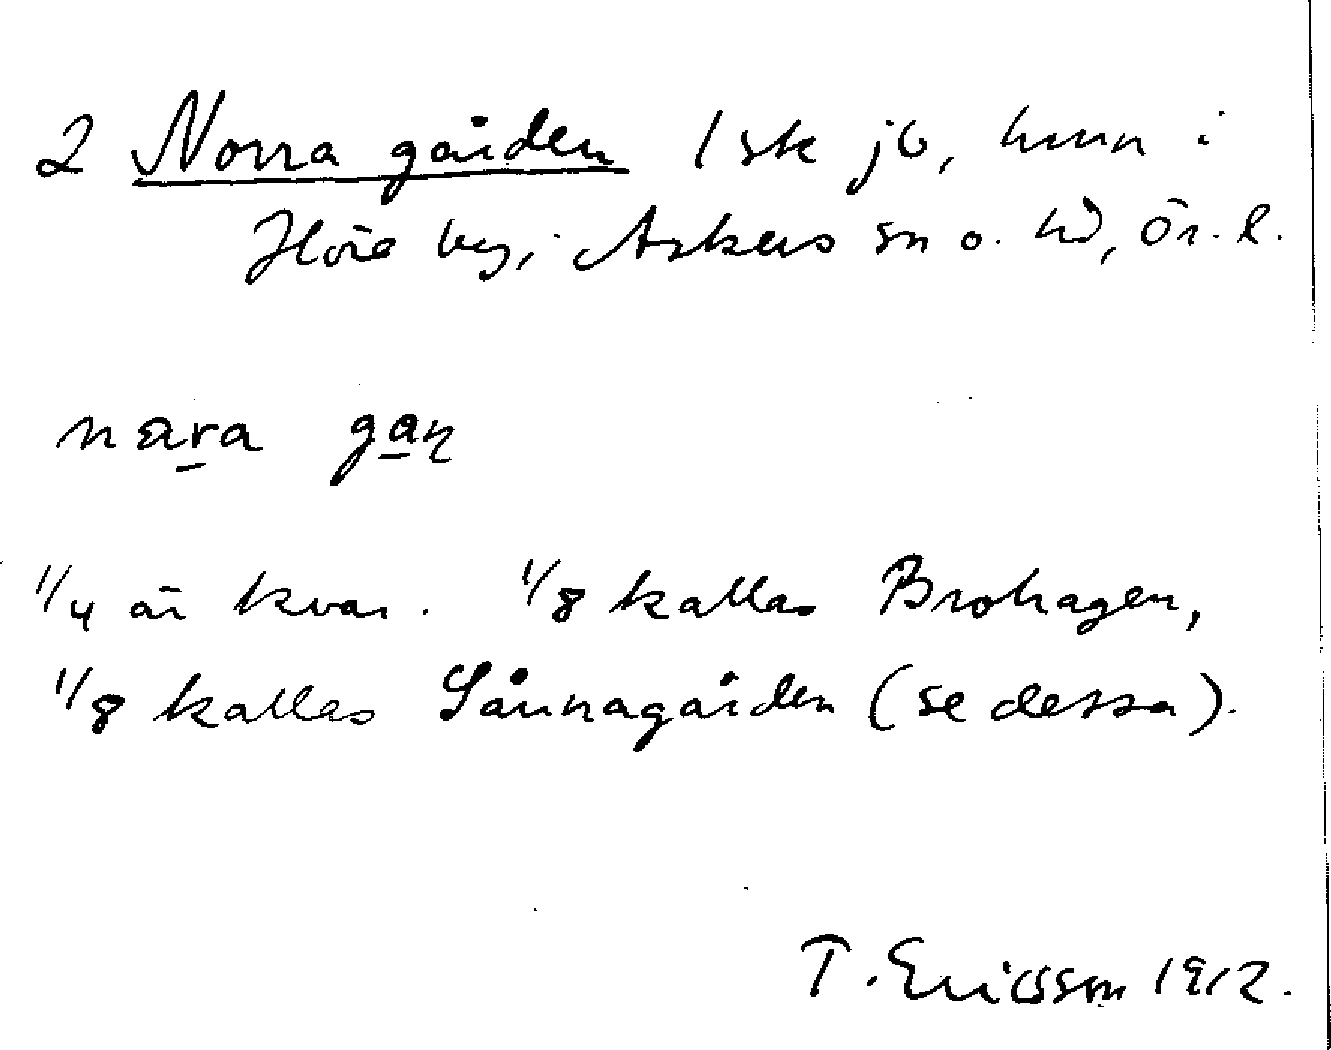 2 Norra gården 1 sk jb, hmn i
Höre by, Askers sn o. hd, Ör. l.
nara gaɳ
1/4 är kvar. 1/8 kallas Brohagen,
1/8 kallas Sånnagården (se dessa).
T. Ericsson 1912.